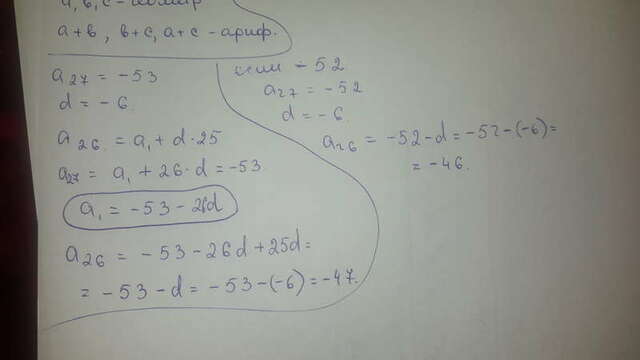 a, b, c – геомтр
a + b , b + c, a + c – ариф.
a₂₇ = −53
d = −6
a₂₆ = a₁ + d·25
a₂₇ = a₁ + 26·d = −53
a₁ = −53 − 26d
a₂₆ = −53 − 26d + 25d =
= −53 − d = −53 − (−6) = −47.
если − 52
a₂₇ = −52
d = −6
a₂₆ = −52 − d = −52 − (−6) =
= −46.